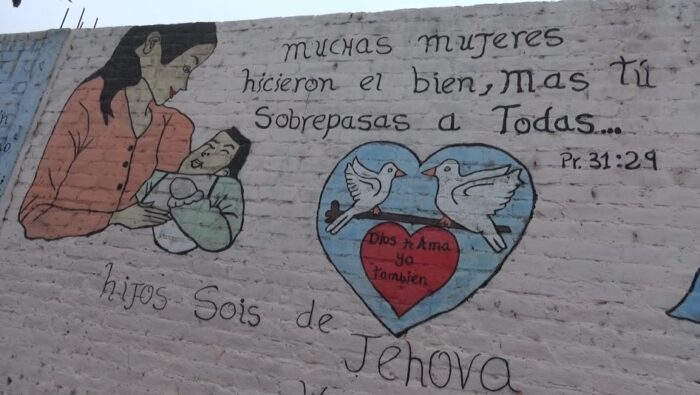 muchas mujeres
hicieron el bien, mas tú
Sobrepasas a Todas...
Pr. 31:29
Dios te Ama
yo
tambien
hijos Sois de
Jehova